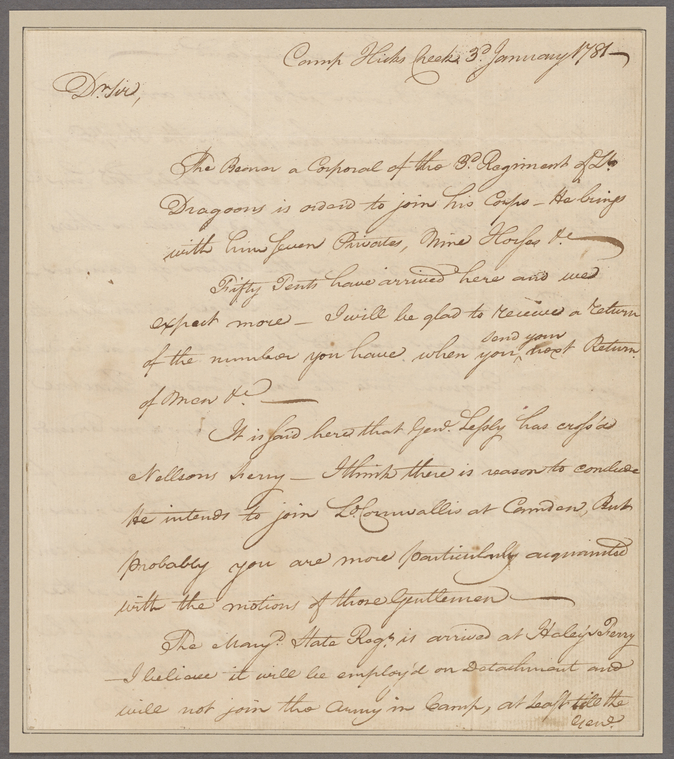 Camp Hicks Creek 3d. January 1781 —
Dr. Sir,
The Bearer a Corporal of the 3d. Regiment of Lt.
Dragoons is orderd to join his Corps — He brings
with him seven Privates, Nine Horses &c —
Fifty Tents have arrived here and we
expect more — I will be glad to receive a return
of the number you have when you send your next Return
of men &c —
It is said here that Genl. Lessly has cross'd
Nellsons Ferry — I think there is reason to conclude
He intends to join Ld. Cornwallis at Camden, But
probably you are more particularly acquainted
with the motions of those Gentlemen —
The Maryd. State Regt. is arrived at Haley's Ferry
— I believe it will be employ'd on Detachment and
will not join the Army in Camp, at Least till the
Genl.